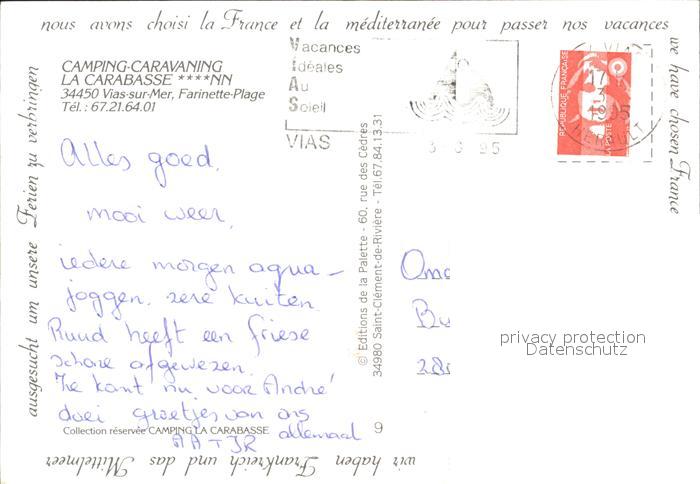 nous avons choisi la France et la méditerranée pour passer nos vacances
we have chosen France
CAMPING-CARAVANING
LA CARABASSE ****NN
34450 Vias-sur-Mer, Farinette-Plage
Tél. : 67.21.64.01
Vacances
Idéales
Au
Soleil
VIAS
3 8 95
17
3
1995
HERAULT
REPUBLIQUE FRANÇAISE
LA POSTE
Alles goed,
mooi weer,
iedere morgen aqua-
joggen. zere kuiten.
Ruud heeft een friese
schone afgewezen.
kant nu voor André
doei groetjes van ons
allemaal
© Editions de la Palette - 60, rue des Cèdres
34980 Saint-Clément-de-Rivière - Tél.67.84.13.31
Oma
Bu
28
privacy protection
Datenschutz
Collection réservée CAMPING LA CARABASSE
9
wir haben Frankreich und das Mittelmeer
ausgesucht um unsere Ferien zu verbringen